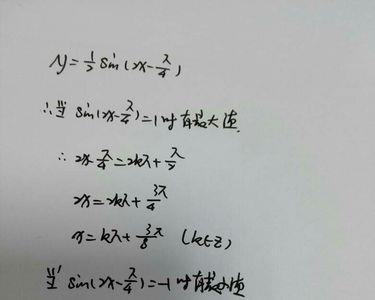 y=½sin(2x-π/4)
∴当 sin(2x-π/4)=1时有最大值
∴ 2x-π/4=2kπ+π/2
2x=2kπ+3π/4
x=kπ+3π/8 (k∈z)
当 sin(2x-π/4)=-1时有最小值